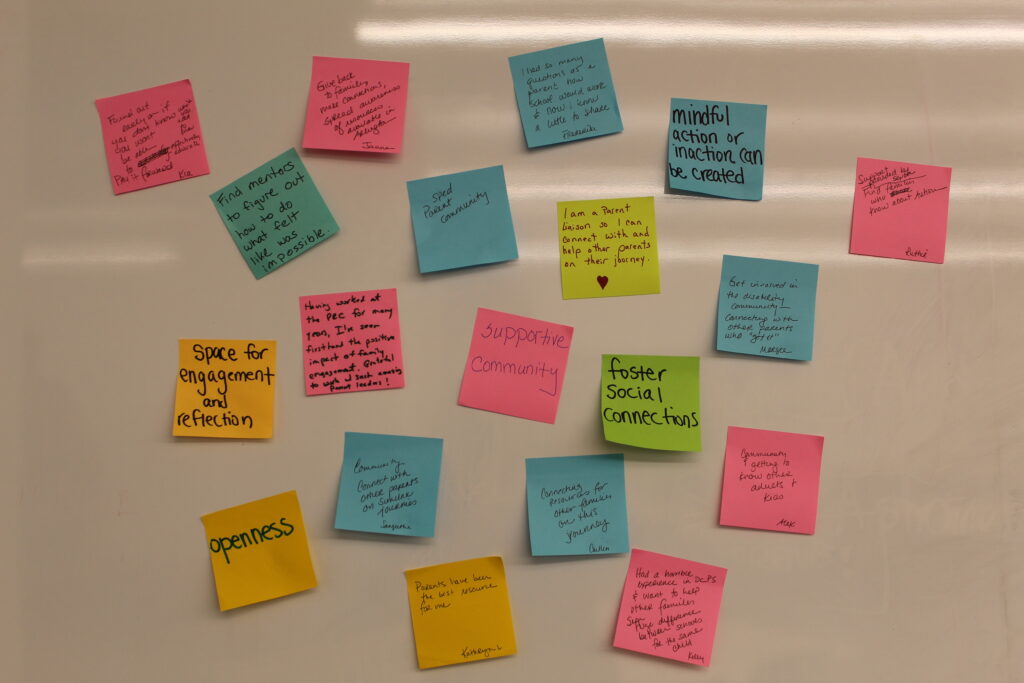 Found out
early on if
you don't know
you want
be able
to effectively
Pay it forward educate
Kia
Give back
to families,
make connections,
spread awareness
of resources
available in
Arlington
Joanna
I had so many
questions as a
parent how
school would work
& now I know
a little to share
mindful
action or
inaction can
be created
Find mentors
to figure out
how to do
what felt
like was
impossible.
sped
Parent
community
I am a Parent
liaison so I can
connect with and
help other parents
on their journey.
Support
families
who
know about Autism
Get involved in
the disability
community—
connecting with
other parents
who "get it"
Having worked at
the PRC for many
years, I've seen
firsthand the positive
impact of family
engagement. Grateful
to work w/ such amazing
parent leaders!
Supportive
Community
Space for
engagement
and
reflection
foster
social
connections
Community
& getting to
know other
adults &
kids
Alex
Community
Connect with
other parents
on similar
journeys
Connecting
resources for
other families
on this
journey
openness
Parents have been
the best resource
for me
Kathryn L
Had a horrible
experience in DCPS
& want to help
other families
Saw
huge difference
between schools
for the same
child
Kelly